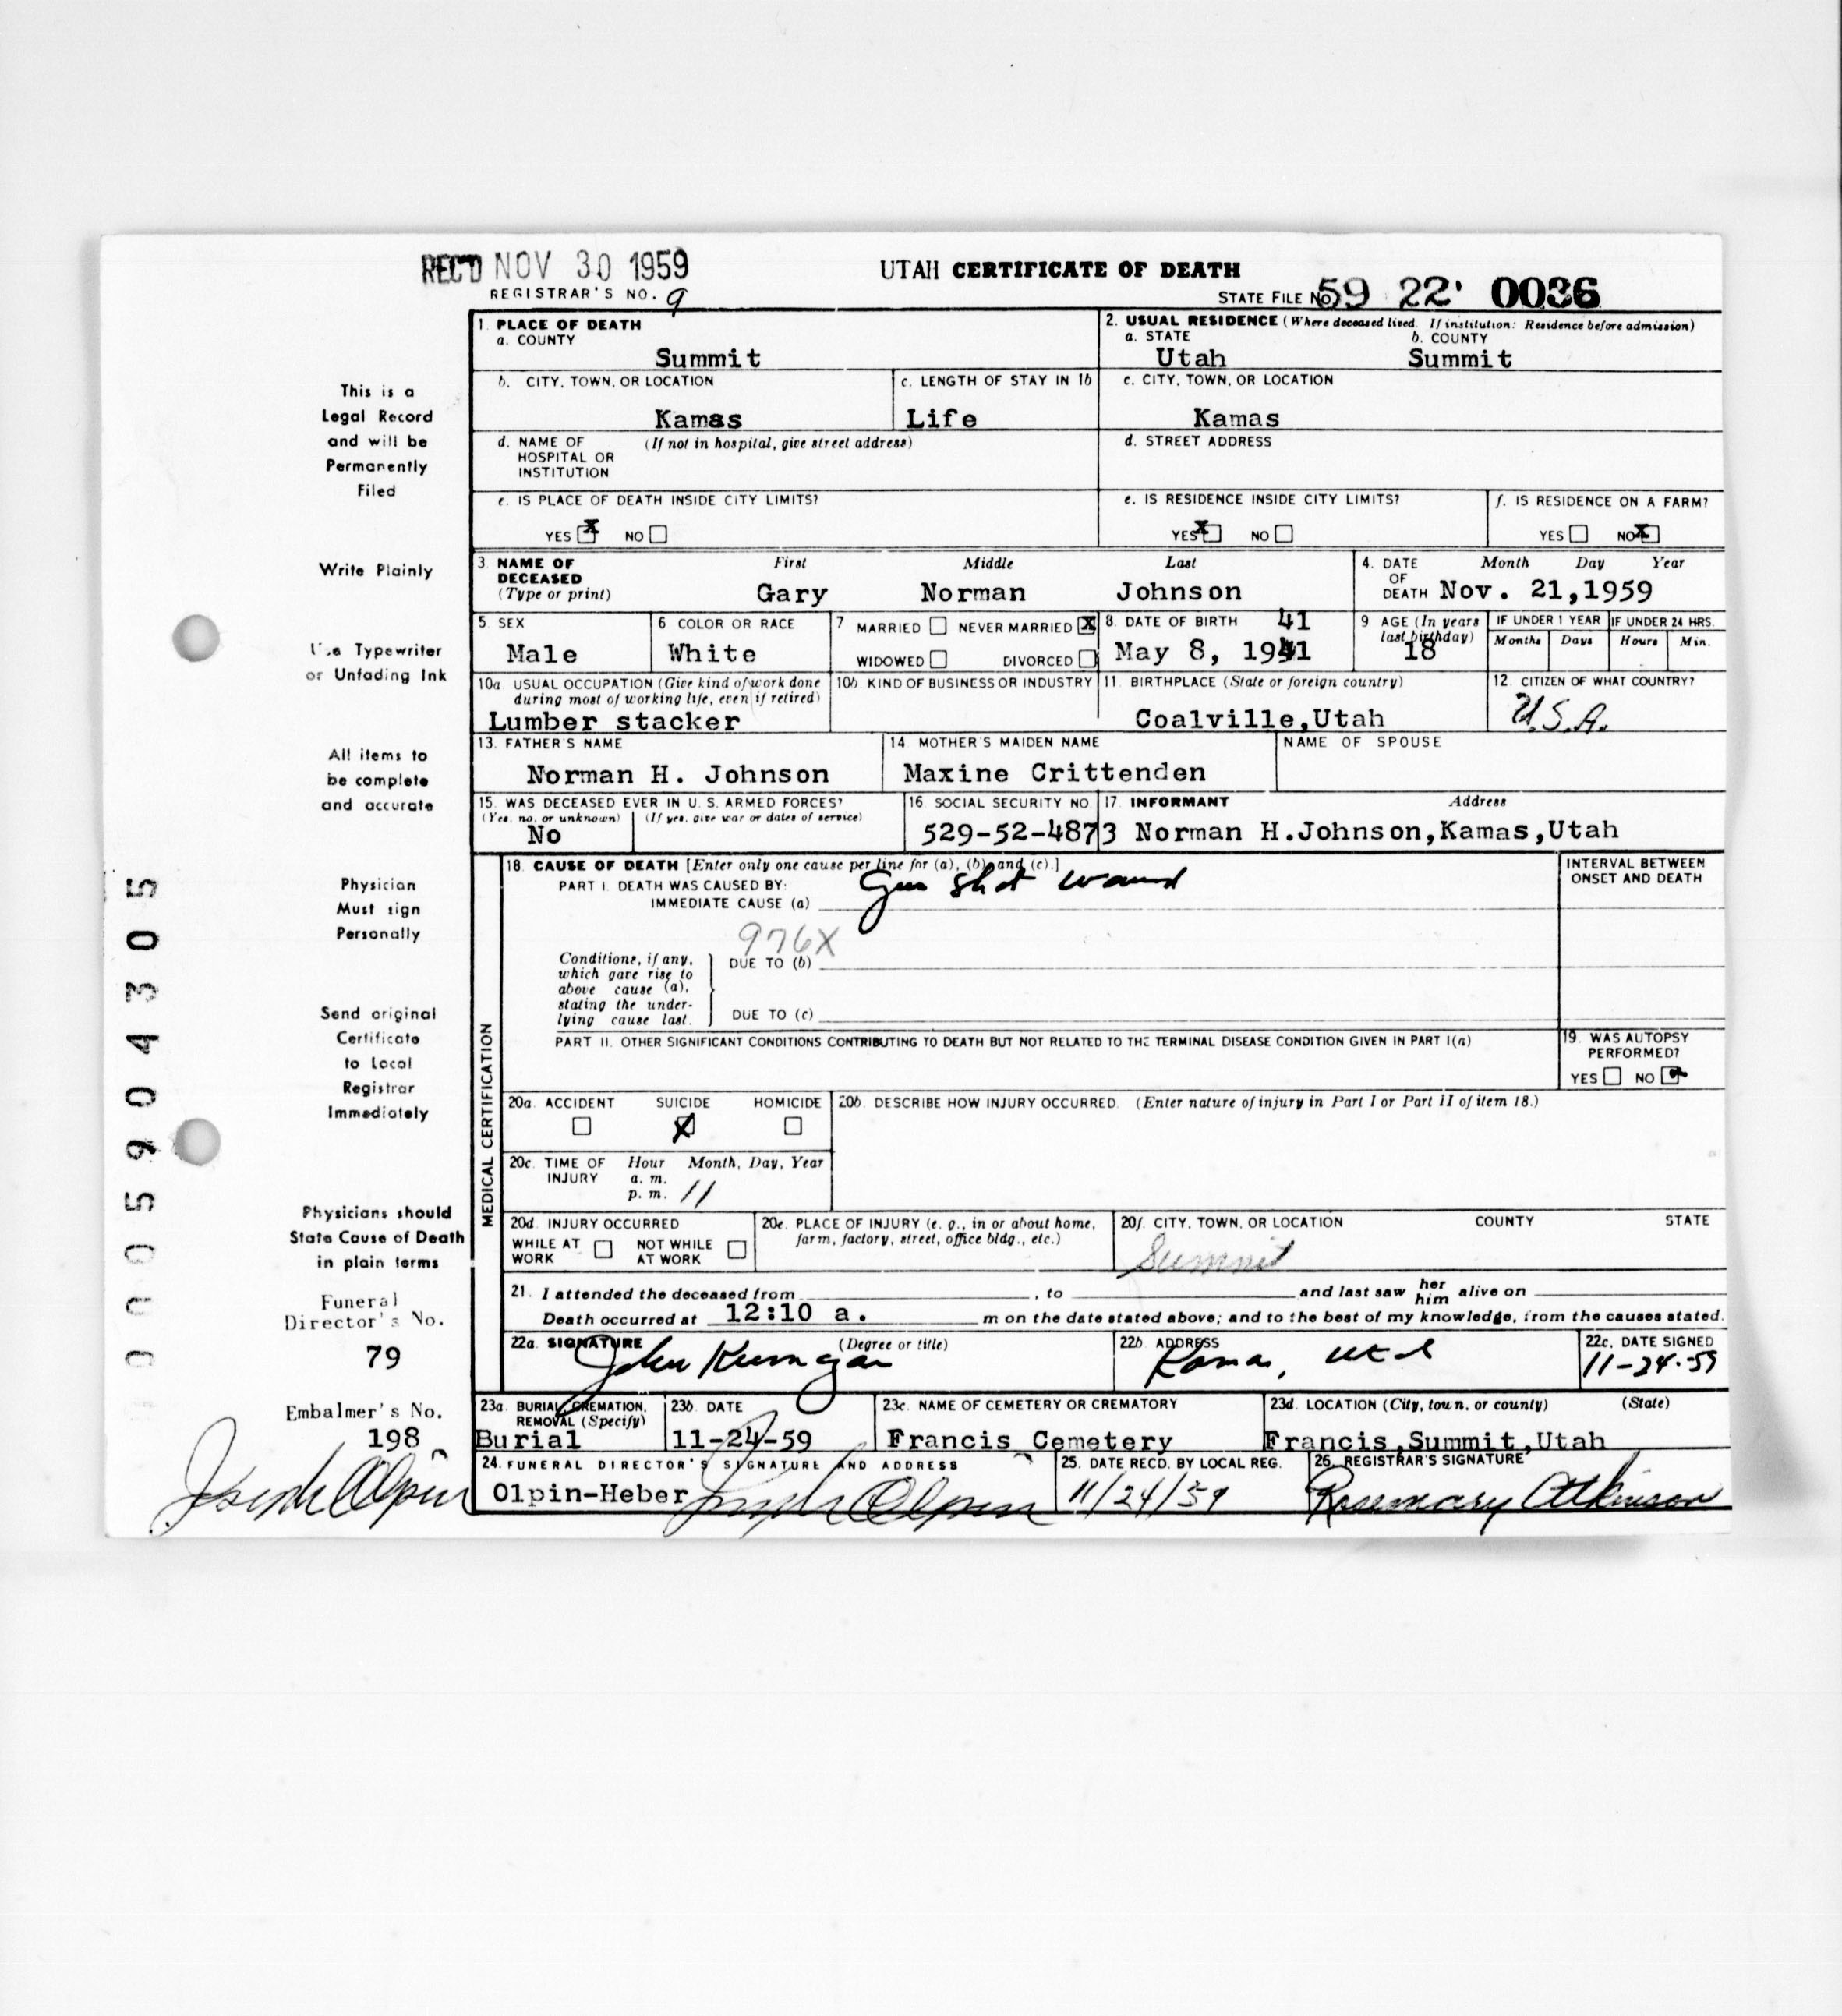 REC'D NOV 30 1959
UTAH CERTIFICATE OF DEATH
REGISTRAR'S NO. 9
STATE FILE NO. 59 22 0036
1. PLACE OF DEATH
a. COUNTY
Summit
2. USUAL RESIDENCE (Where deceased lived. If institution: Residence before admission)
a. STATE b. COUNTY
Utah Summit
b. CITY, TOWN, OR LOCATION
Kamas
c. LENGTH OF STAY IN 1b
Life
c. CITY, TOWN, OR LOCATION
Kamas
d. NAME OF (If not in hospital, give street address)
HOSPITAL OR
INSTITUTION
d. STREET ADDRESS
e. IS PLACE OF DEATH INSIDE CITY LIMITS?
YES X NO
e. IS RESIDENCE INSIDE CITY LIMITS?
YES X NO
f. IS RESIDENCE ON A FARM?
YES NO X
3. NAME OF First Middle Last
DECEASED
(Type or print) Gary Norman Johnson
4. DATE Month Day Year
OF
DEATH Nov. 21,1959
5. SEX
Male
6 COLOR OR RACE
White
7 MARRIED NEVER MARRIED X
WIDOWED DIVORCED
8. DATE OF BIRTH 41
May 8, 1941
9 AGE (In years
last birthday)
18
IF UNDER 1 YEAR IF UNDER 24 HRS.
Months Days Hours Min.
10a. USUAL OCCUPATION (Give kind of work done
during most of working life, even if retired)
Lumber stacker
10b. KIND OF BUSINESS OR INDUSTRY
11. BIRTHPLACE (State or foreign country)
Coalville,Utah
12. CITIZEN OF WHAT COUNTRY?
U.S.A.
13. FATHER'S NAME
Norman H. Johnson
14. MOTHER'S MAIDEN NAME
Maxine Crittenden
NAME OF SPOUSE
15. WAS DECEASED EVER IN U. S. ARMED FORCES?
(Yes, no, or unknown) (If yes, give war or dates of service)
No
16. SOCIAL SECURITY NO.
529-52-4873
17. INFORMANT Address
Norman H.Johnson,Kamas,Utah
18. CAUSE OF DEATH [Enter only one cause per line for (a), (b), and (c).]
PART I. DEATH WAS CAUSED BY:
IMMEDIATE CAUSE (a) Gun shot wound
INTERVAL BETWEEN
ONSET AND DEATH
976X
Conditions, if any,
which gave rise to
above cause (a),
stating the under-
lying cause last.
DUE TO (b)
DUE TO (c)
PART II. OTHER SIGNIFICANT CONDITIONS CONTRIBUTING TO DEATH BUT NOT RELATED TO THE TERMINAL DISEASE CONDITION GIVEN IN PART I(a)
19. WAS AUTOPSY
PERFORMED?
YES NO
MEDICAL CERTIFICATION
20a. ACCIDENT SUICIDE HOMICIDE
X
20b. DESCRIBE HOW INJURY OCCURRED. (Enter nature of injury in Part I or Part II of item 18.)
20c. TIME OF Hour Month, Day, Year
INJURY a. m.
p. m. 11
20d. INJURY OCCURRED
WHILE AT NOT WHILE
WORK AT WORK
20e. PLACE OF INJURY (e. g., in or about home,
farm, factory, street, office bldg., etc.)
20f. CITY, TOWN, OR LOCATION COUNTY STATE
Summit
21. I attended the deceased from , to and last saw her him alive on
Death occurred at 12:10 a. m on the date stated above; and to the best of my knowledge, from the causes stated.
22a. SIGNATURE (Degree or title)
John
22b. ADDRESS
Kamas, Utah
22c. DATE SIGNED
11-24-59
23a. BURIAL, CREMATION,
REMOVAL (Specify)
Burial
23b. DATE
11-24-59
23c. NAME OF CEMETERY OR CREMATORY
Francis Cemetery
23d. LOCATION (City, town, or county) (State)
Francis,Summit,Utah
24. FUNERAL DIRECTOR'S SIGNATURE AND ADDRESS
Olpin-Heber Joseph Olpin
25. DATE RECD. BY LOCAL REG.
11/24/59
26. REGISTRAR'S SIGNATURE
Rosemary Atkinson
This is a
Legal Record
and will be
Permanently
Filed
Write Plainly
Use Typewriter
or Unfading Ink
All items to
be complete
and accurate
Physician
Must sign
Personally
Send original
Certificate
to Local
Registrar
Immediately
Physicians should
State Cause of Death
in plain terms
Funeral
Director's No.
79
Embalmer's No.
198
Joseph Olpin
0005904305